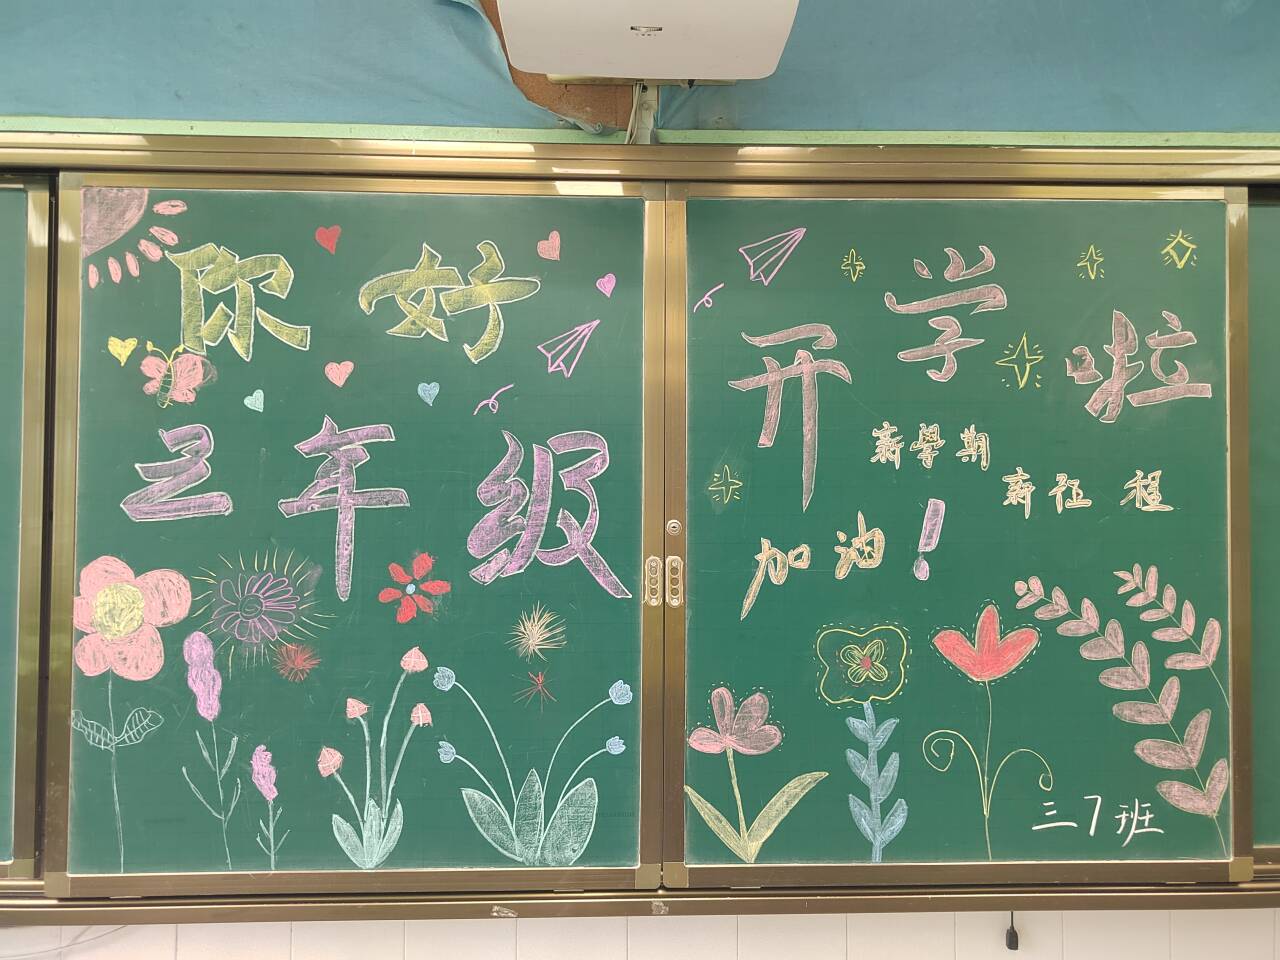 你好
三年级
开学啦
新學期
新征程
加油!
三7班